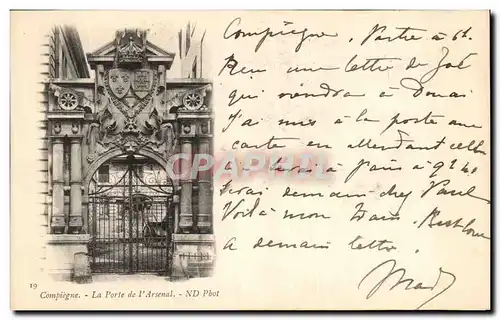 Compiègne. Partie à 6h.
Reçu une lettre de José
qui viendra à Douai
J'ai mis à la poste une
carte en attendant celle
à Paris à 9h40
Serai demain chez Paul
Voilà mon
à demain lettre.
CARTE
19
Compiègne. - La Porte de l'Arsenal. - ND Phot